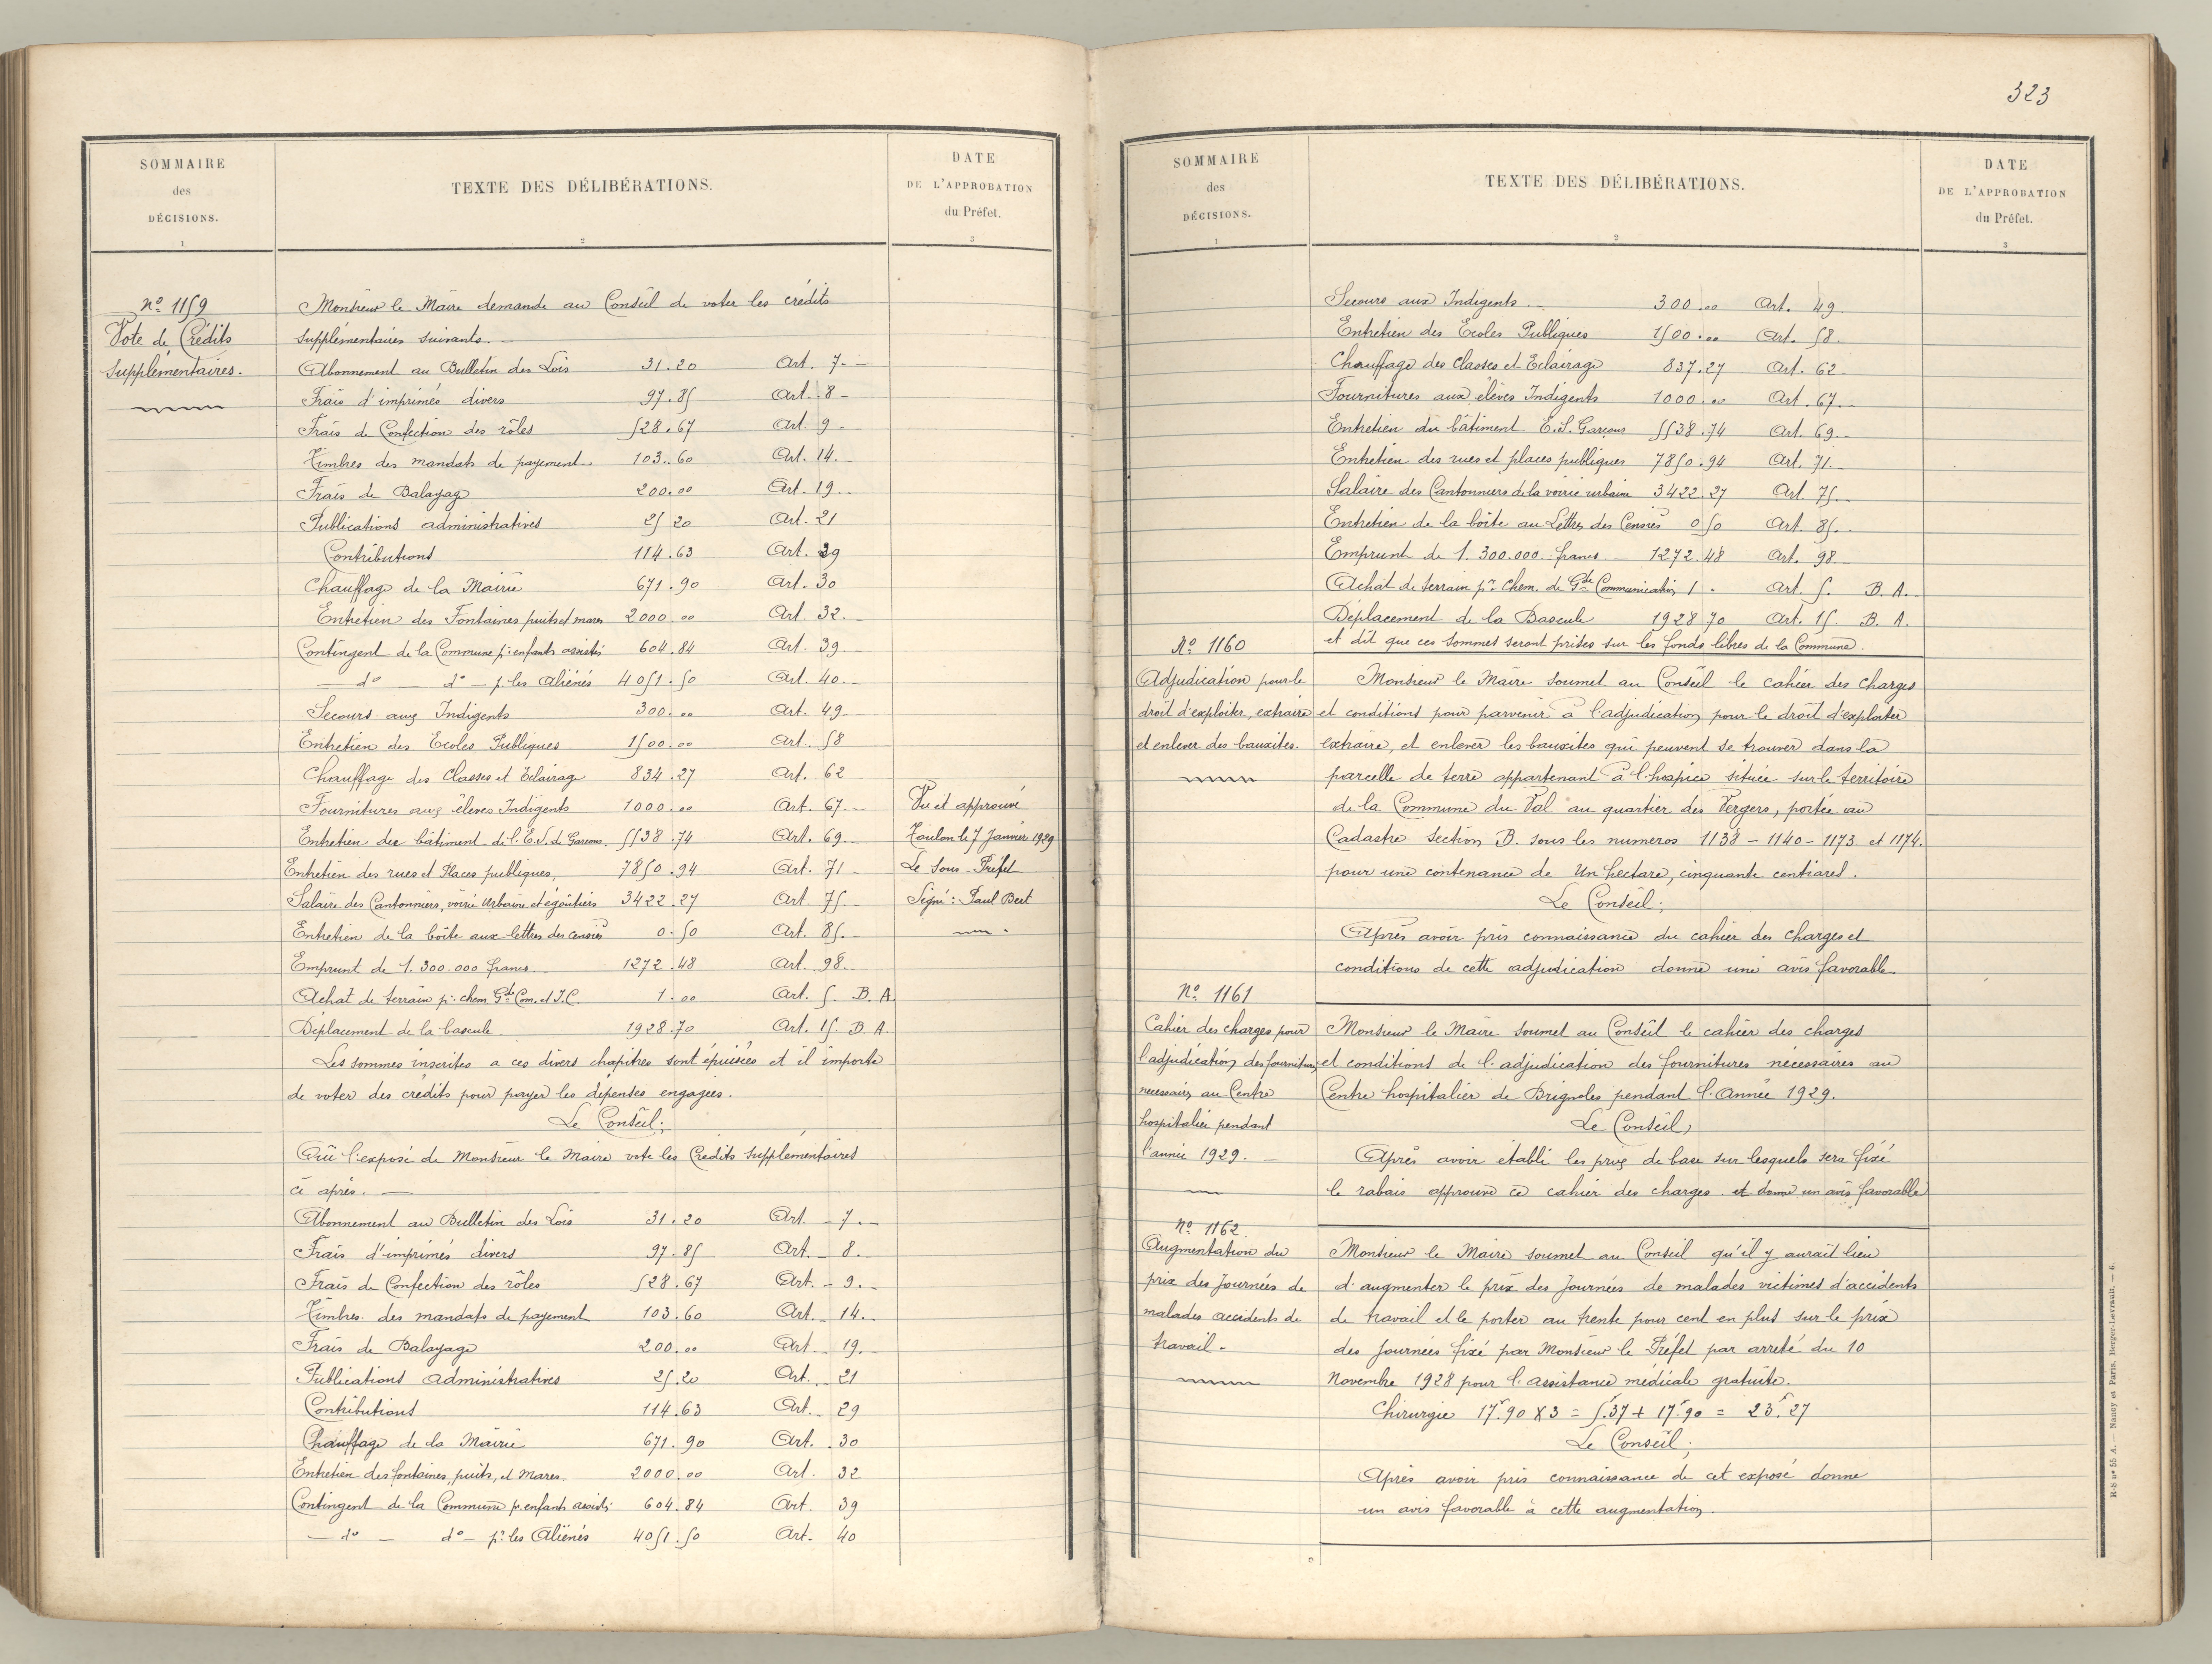 SOMMAIRE
des
DÉCISIONS.
1
TEXTE DES DÉLIBÉRATIONS.
2
DATE
DE L'APPROBATION
du Préfet.
3
Nº 1159
Vote de Crédits
Supplémentaires.
Monsieur le Maire demande au Conseil de voter les crédits
supplémentaires suivants. —
Abonnement au Bulletin des Lois 31.20 Art. 7. —
Frais d'imprimés divers 97.85 Art. 8 —
Frais de Confection des rôles 528.67 Art. 9 —
Timbres des mandats de payement 103.60 Art. 14. —
Frais de Balayage 200.00 Art. 19. —
Publications administratives 25 20 Art. 21
Contributions 114.63 Art. 29
Chauffage de la Mairie 671.90 Art. 30
Entretien des Fontaines puits et mares 2000.00 Art. 32. —
Contingent de la Commune pr. enfants assistés 604.84 Art. 39. —
— do — do — p. les Aliénés 4051.50 Art. 40. —
Secours aux Indigents 300.00 Art. 49 —
Entretien des Ecoles Publiques 1500.00 Art. 58
Chauffage des Classes et Eclairage 834.27 Art. 62
Fournitures aux élèves Indigents 1000.00 Art. 67. —
Entretien du bâtiment de l'E.S. de Garçons. 5538.74 Art. 69 —
Entretien des rues et Places publiques, 7850.94 Art. 71 —
Salaire des Cantonniers, voirie Urbaine et égoutiers 3422.27 Art. 75 —
Entretien de la boîte aux lettres des censiès 0.50 Art. 85. —
Emprunt de 1.300.000 francs 1272.48 Art. 98. —
Achat de terrain pr. chem. Gde Com. et I.C. 1.00 Art. 5. B. A.
Déplacement de la bascule 1928.70 Art. 15. B. A.
Les sommes inscrites a ces divers chapitres sont épuisées et il importe
de voter des crédits pour payer les dépenses engagées.
Le Conseil;
Ouï l'exposé de Monsieur le Maire vote les Crédits supplémentaires
ci après. —
Abonnement au Bulletin des Lois 31.20 Art. — 7. —
Frais d'imprimés divers 97.85 Art. — 8. —
Frais de Confection des rôles 528.67 Art. — 9. —
Timbres des mandats de payement 103.60 Art. — 14. —
Frais de Balayage 200.00 Art — 19. —
Publications administratives 25.20 Art. — 21
Contributions 114.63 Art. — 29
Chauffage de la Mairie 671.90 Art. . 30
Entretien des fontaines, puits, et Mares 2000.00 Art. 32
Contingent de la Commune pr. enfants assistés 604.84 Art. 39
— do — do — pr. les Aliénés 4051.50 Art. 40
Vu et approuvé
Toulon le 7 Janvier 1929
Le Sous-Préfet
Signé: Paul Bert
323
SOMMAIRE
des
DÉCISIONS.
1
TEXTE DES DÉLIBÉRATIONS.
2
DATE
DE L'APPROBATION
du Préfet.
3
Secours aux Indigents — 300.00 Art. 49
Entretien des Ecoles Publiques 1500.00 Art. 58.
Chauffage des Classes et Eclairage 837.27 Art. 62
Fournitures aux élèves Indigents 1000.00 Art. 67. —
Entretien du bâtiment E.S. Garçons 5538.74 Art. 69 —
Entretien des rues et places publiques 7850.94 Art. 71 —
Salaire des Cantonniers de la voirie urbaine 3422.27 Art. 75. —
Entretien de la boîte au Lettres des Censiès 0 50 Art. 85. —
Emprunt de 1.300.000 francs — 1272.48 Art. 98 —
Achat de terrain pr. Chem. de Gde Communication 1 . Art. 5. B. A. —
Déplacement de la Bascule 1928 70 Art. 15. B. A.
et dit que ces sommes seront prises sur les fonds libres de la Commune.
Nº 1160
Adjudication pour le
droit d'exploiter, extraire
et enlever des bauxites.
Monsieur le Maire soumet au Conseil le cahier des charges
et conditions pour parvenir à l'adjudication pour le droit d'exploiter
extraire, et enlever les bauxites qui peuvent se trouver dans la
parcelle de terre appartenant à l'hospice située sur le territoire
de la Commune du Val au quartier des Vergers, portée au
Cadastre section B. sous les numeros 1138 – 1140 – 1173. et 1174.
pour une contenance de Un hectare, cinquante centiares.
Le Conseil;
Après avoir pris connaissance du cahier des charges et
conditions de cette adjudication donne une avis favorable.
Nº 1161
Cahier des charges pour
l'adjudication des fournitures
necessaires au Centre
hospitalier pendant
l'année 1929. —
Monsieur le Maire soumet au Conseil le cahier des charges
et conditions de l'adjudication des fournitures nécessaires au
Centre hospitalier de Brignoles pendant l'Année 1929.
Le Conseil,
Après avoir établi les prix de base sur lesquels sera fixé
le rabais approuve ce cahier des charges et donne un avis favorable
Nº 1162
Augmentation du
prix des Journées de
malades accidents de
travail.
Monsieur le Maire soumet au Conseil qu'il y aurait lieu
d'augmenter le prix des Journées de malades victimes d'accidents
de travail et le porter au trente pour cent en plus sur le prix
des Journées fixé par Monsieur le Préfet par arreté du 10
Novembre 1928 pour l'assistance médicale gratuite.
Chirurgie 17f.90 X 3 = 5.37 + 17f.90 = 23f.27
Le Conseil;
Après avoir pris connaissance de cet exposé donne
un avis favorable à cette augmentation.
R-S nº 55 A. — Nancy et Paris. Berger-Levrault. — 6.